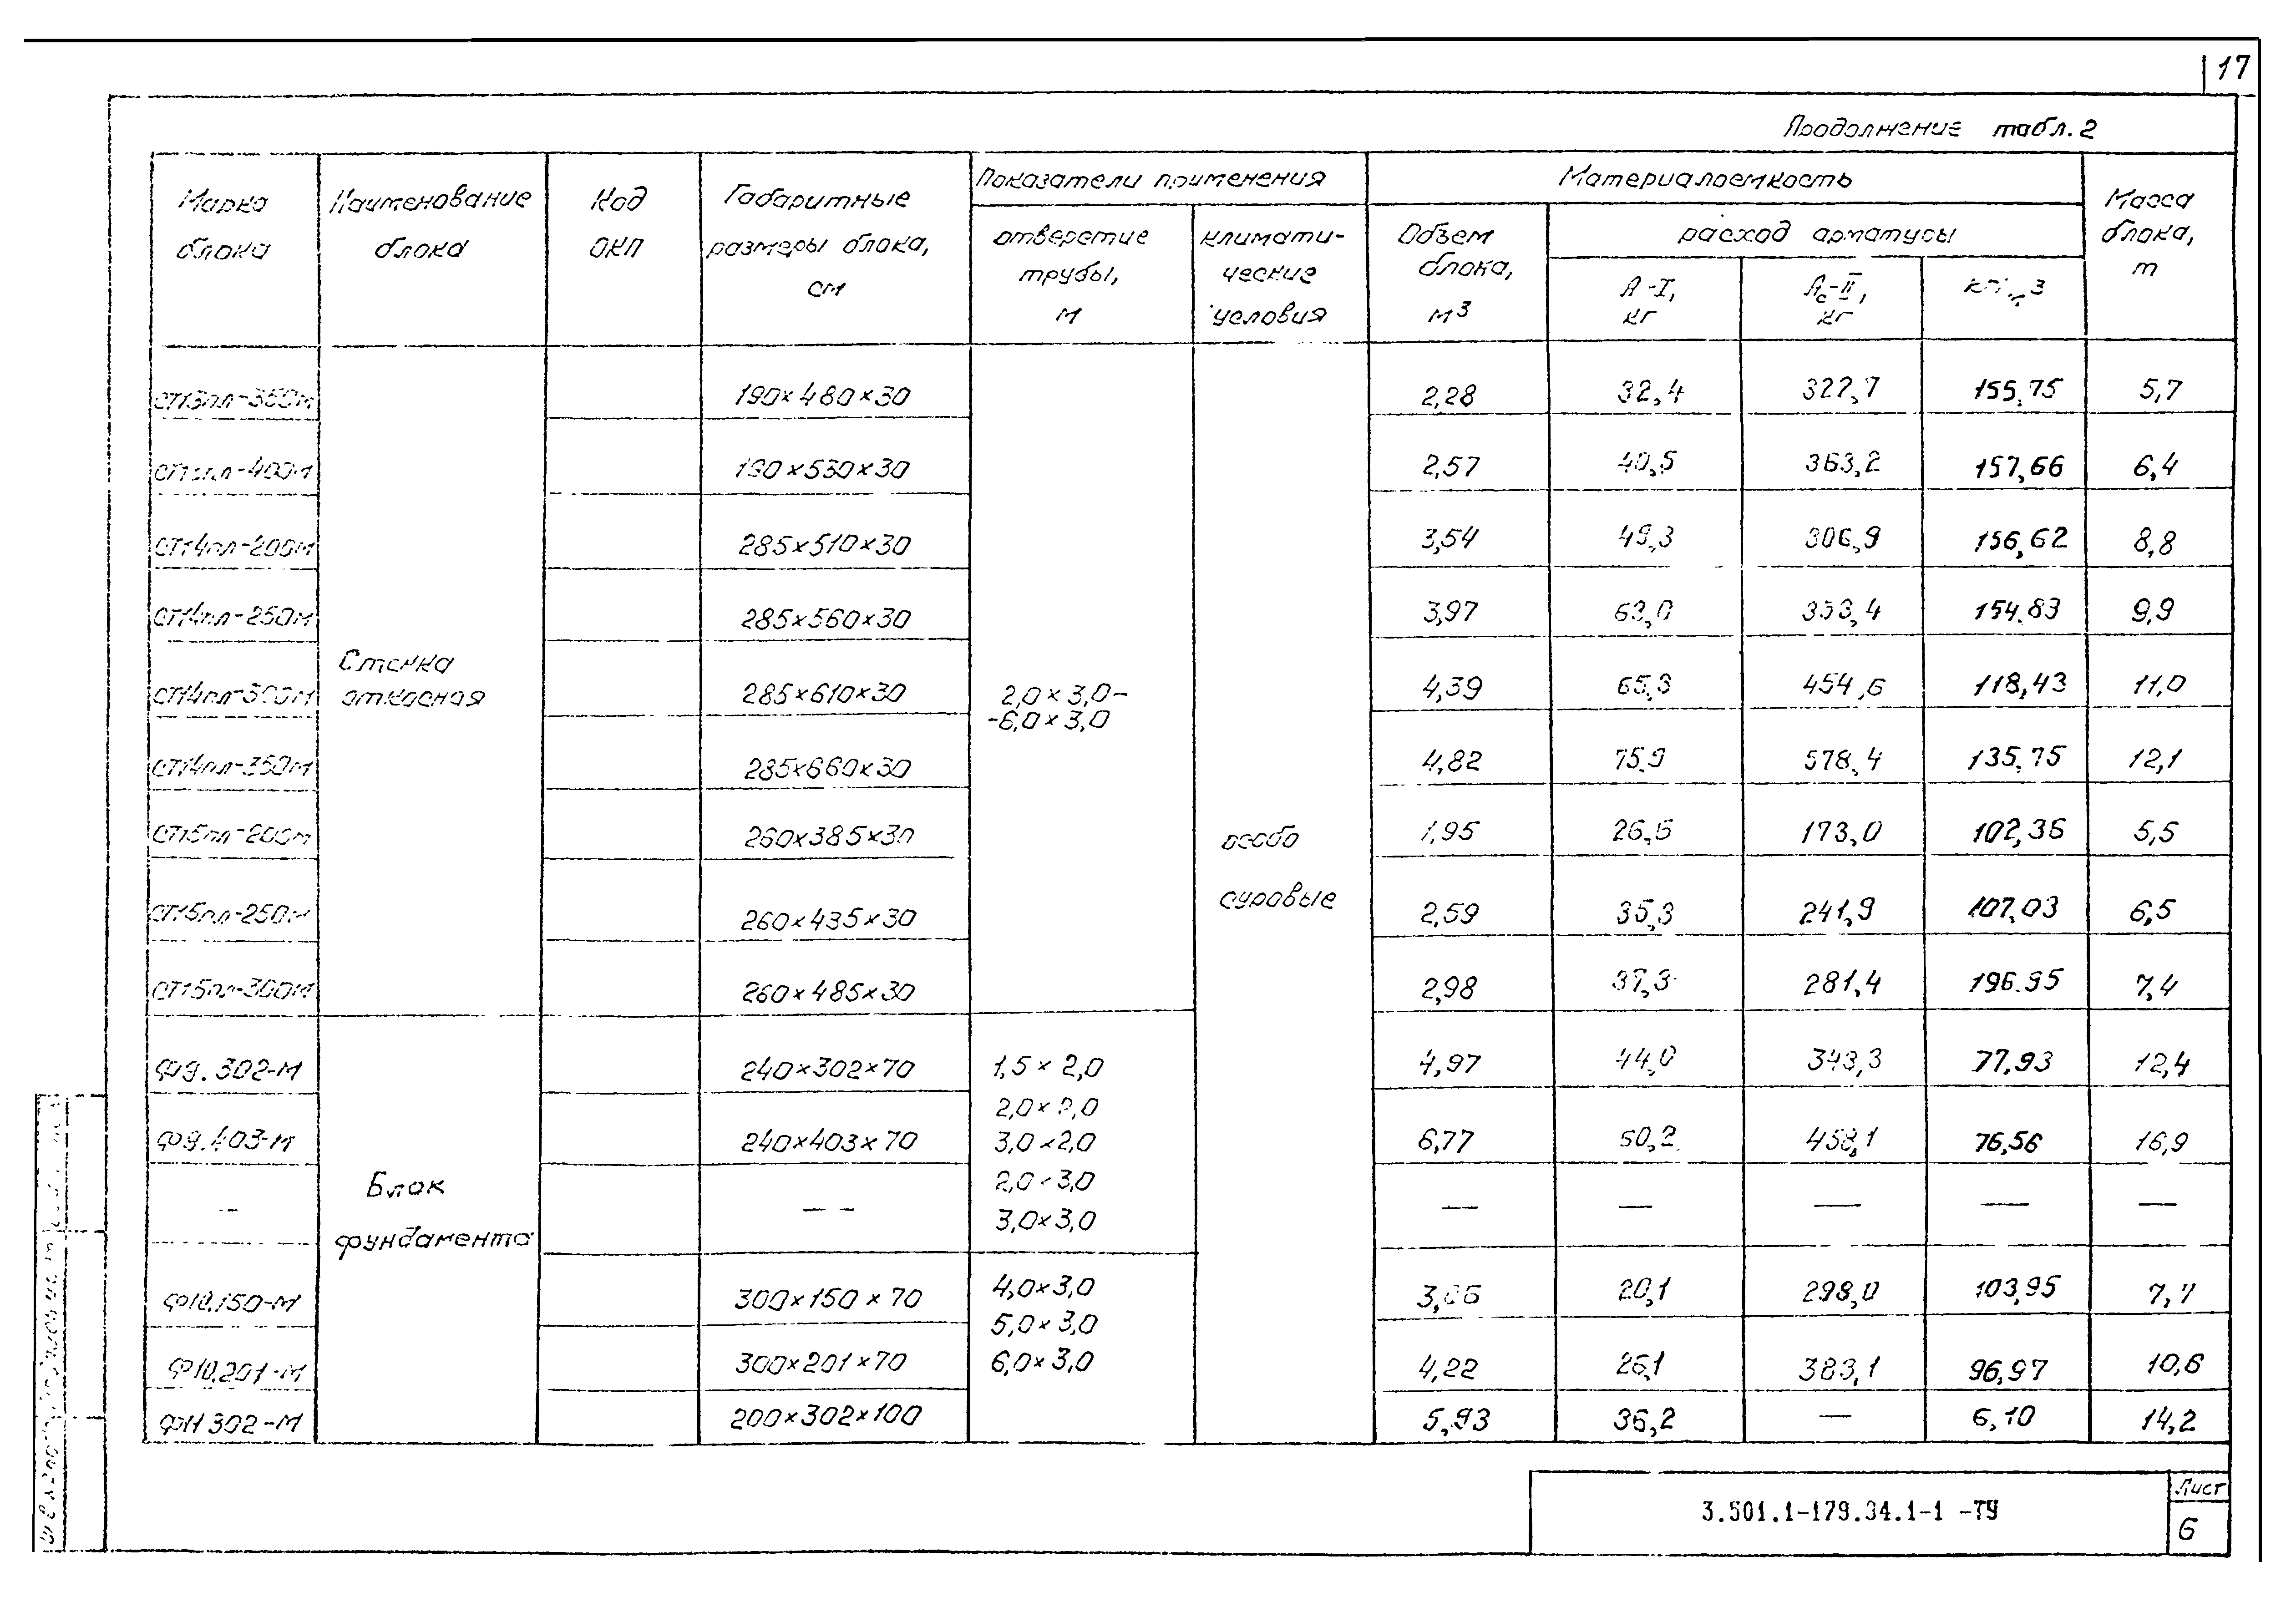 17
Продолжение табл. 2
Марка блока
Наименование блока
Код ОКП
Габаритные размеры блока, см
Показатели применения
отверстие трубы, м
климатические условия
Материалоемкость
Объем блока, м3
расход арматуры
А-I, кг
Ас-II, кг
Масса блока, т
190×480×30 2,28 32,4 322,7 155,75 5,7
190×530×30 2,57 40,5 363,2 157,66 6,4
СТ14пл-200м 285×510×30 3,54 49,3 306,9 156,62 8,8
СТ14пл-250м 285×560×30 3,97 63,0 353,4 154.83 9,9
Стенка
откосная
СТ14пл-300м 285×610×30 2,0×3,0-
-6,0×3,0
4,39 65,3 454,6 118,43 11,0
СТ14пл-350м 285×660×30 4,82 75,9 578,4 135,75 12,1
СТ15пл-200м 260×385×30 1,95 26,6 173,0 102,36 5,5
особо
суровые
СТ15пл-250м 260×435×30 2,59 35,3 241,9 107,03 6,5
СТ15пл-300м 260×485×30 2,98 37,3 281,4 196.95 7,4
Ф9.302-М 240×302×70 1,5×2,0 4,97 44,0 343,3 77,93 12,4
2,0×2,0
Ф9.403-М 240×403×70 3,0×2,0 6,77 50,2 458,1 76,56 16,9
Блок
фундамента
2,0×3,0
— — — — — — — —
3,0×3,0
Ф10.150-М 300×150×70 4,0×3,0 20,1 298,0 103,95 7,7
5,0×3,0
Ф10.201-М 300×201×70 6,0×3,0 4,22 26,1 383,1 96,97 10,6
Ф11 302-М 200×302×100 5,93 36,2 — 6,10 14,2
3.501.1-179.94.1-1 -ТУ
Лист
6